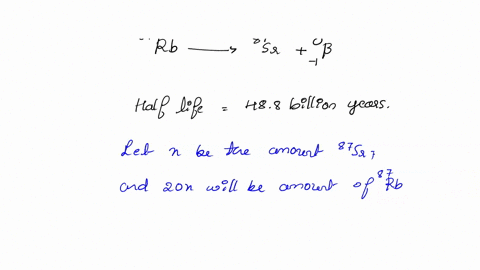 Rb ⟶ Sr + ⁰₋₁β
Half life = 48.8 billion years.
Let n be the amount ⁸⁷Sr,
and 20n will be amount of ⁸⁷Rb